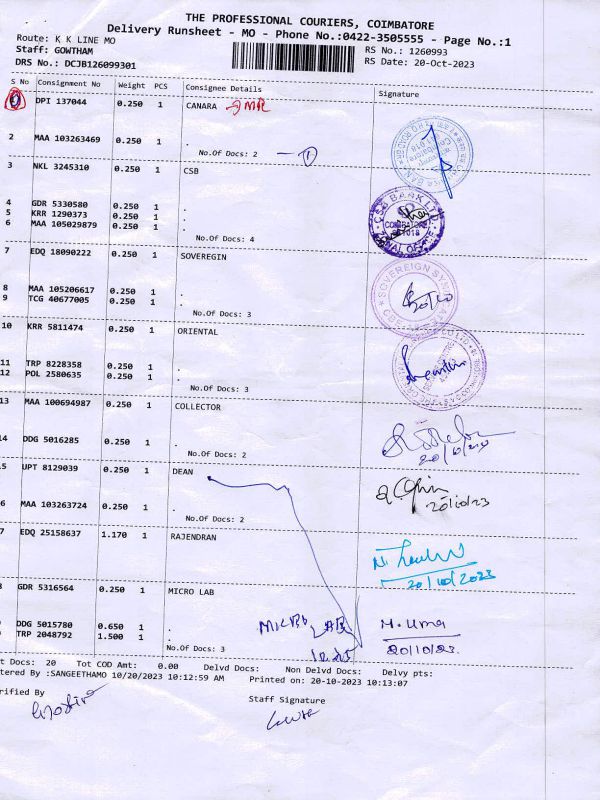 THE PROFESSIONAL COURIERS, COIMBATORE
Delivery Runsheet - MO - Phone No.:0422-3505555 - Page No.:1
Route: K K LINE MO
RS No.: 1260993
Staff: GOWTHAM
RS Date: 20-Oct-2023
DRS No.: DCJB126099301
S No Consignment No Weight PCS Consignee Details Signature
1 DPI 137044 0.250 1 CANARA → MR
2 MAA 103263469 0.250 1 .
No.Of Docs: 2 - 1
3 NKL 3245310 0.250 1 CSB
4 GDR 5330580 0.250 1 .
5 KRR 1290373 0.250 1 .
6 MAA 105029879 0.250 1 .
No.Of Docs: 4
7 EDQ 18090222 0.250 1 SOVEREGIN
8 MAA 105206617 0.250 1 .
9 TCG 40677005 0.250 1 .
No.Of Docs: 3
10 KRR 5811474 0.250 1 ORIENTAL
11 TRP 8228358 0.250 1 .
12 POL 2580635 0.250 1 .
No.Of Docs: 3
13 MAA 100694987 0.250 1 COLLECTOR
14 DDG 5016285 0.250 1 .
No.Of Docs: 2
20/10/23
5 UPT 8129039 0.250 1 DEAN
6 MAA 103263724 0.250 1 .
No.Of Docs: 2
20/10/23
7 EDQ 25158637 1.170 1 RAJENDRAN
20/10/2023
8 GDR 5316564 0.250 1 MICRO LAB
DDG 5015780 0.650 1 .
TRP 2048792 1.500 1 .
No.Of Docs: 3
MICRO LAB
M. Uma
20/10/23.
t Docs: 20 Tot COD Amt: 0.00 Delvd Docs: Non Delvd Docs: Delvy pts:
tered By :SANGEETHAMO 10/20/2023 10:12:59 AM Printed on: 20-10-2023 10:13:07
rified By
Staff Signature